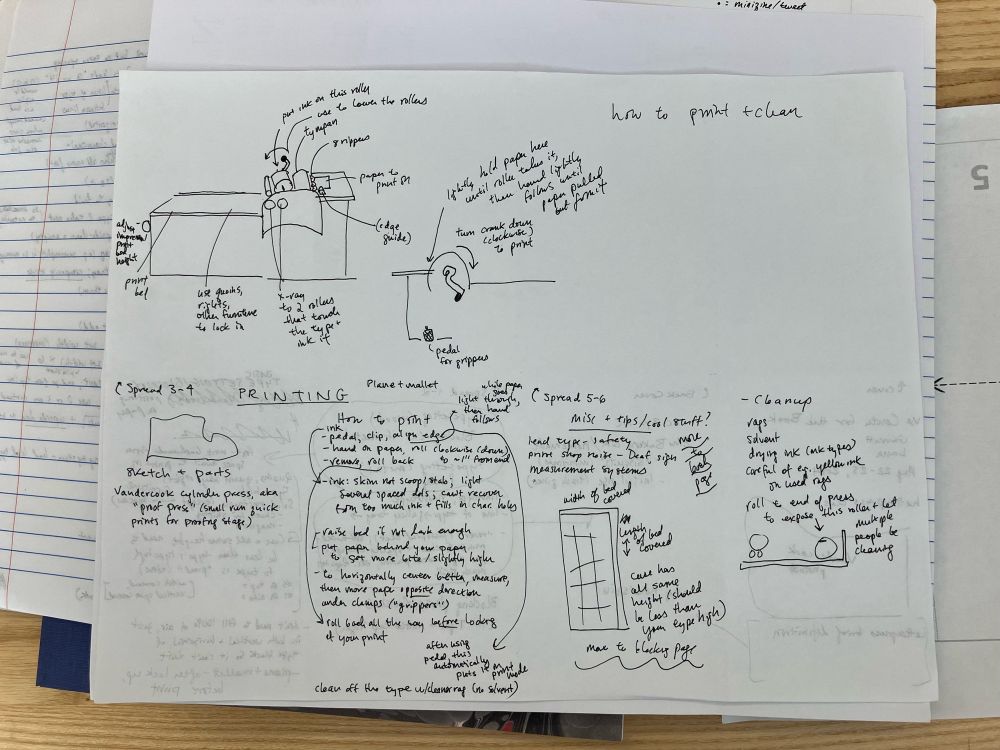 • : minizine/tweet
how to print + clean
put ink on this roller
use to lower the rollers
tympan
grippers
paper to
print on
(edge
guide)
adjust
impression/
print
bed
height
print
bed
use quoins,
reglets,
other furniture
to lock in
x-ray
to 2 rollers
that touch
the type +
ink it
lightly hold paper here
until roller takes it,
then hand lightly
follows until
paper pulled
out from it
turn crank down
(clockwise)
to print
pedal
for grippers
Spread 3-4
PRINTING
sketch + parts
Vandercook cylinder press, aka
"proof press" (small run quick
prints for proofing stage)
Plane + mallet
while paper
light through,
then hand
follows
How to print
- ink
- pedal, clip, align edge
- hand on paper, roll clockwise (down)
- remove, roll back to ~1" from end
- ink: skim not scoop/stab; light
several spaced dots; can't recover
from too much ink + fills in char holes
- raise bed if not dark enough
- put paper behind your paper
to get more bite/slightly higher
- to horizontally center better, measure,
then move paper opposite direction
under clamps ("grippers")
- roll back all the way before looking
at your print
after using
pedal this
automatically
puts it in print
mode
clean off the type w/cleaner rag (no solvent)
Spread 5-6
misc + tips/cool stuff?
lead type - safety
print shop noise - Deaf, sign
measurement systems
more
to
back
page
width of bed
covered
length
of bed
covered
case has
all same
height (should
be less than
your type high)
move to blocking page
- Cleanup
rags
solvent
drying ink (ink types)
careful of e.g. yellow ink
on used rags
roll to end of press
to expose this roller + let
multiple
people be
cleaning
5